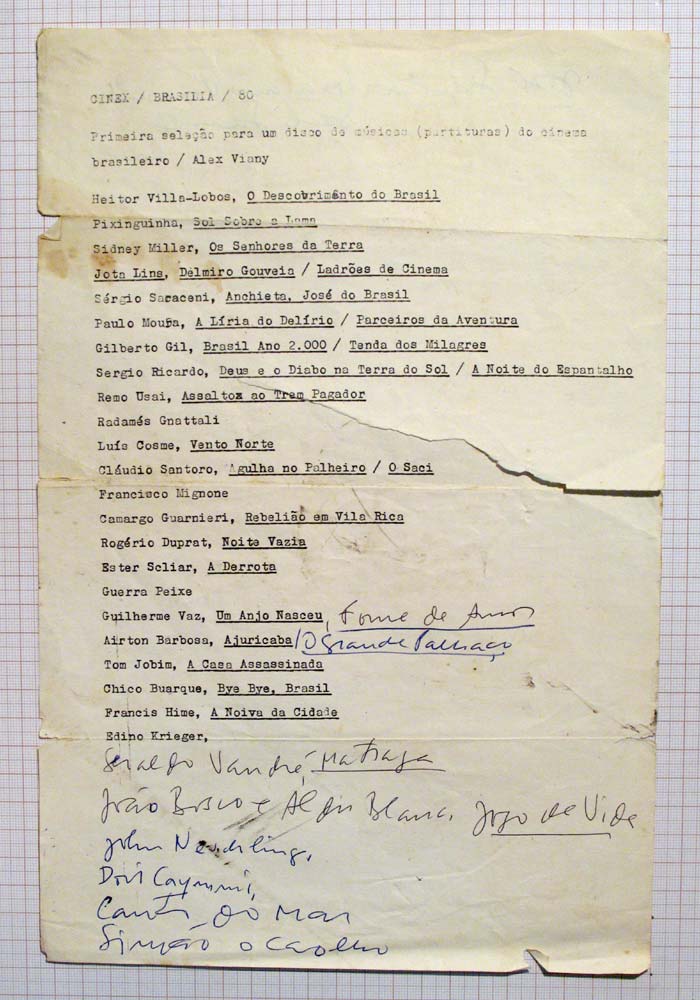 CINEX / BRASILIA / 80
Primeira seleção para um disco de músicas (partituras) do cinema
brasileiro / Alex Viany
Heitor Villa-Lobos, O Descobrimento do Brasil
Pixinguinha, Sol Sobre a Lama
Sidney Miller, Os Senhores da Terra
Jota Lins, Delmiro Gouveia / Ladrões de Cinema
Sérgio Saraceni, Anchieta, José do Brasil
Paulo Moura, A Líria do Delírio / Parceiros da Aventura
Gilberto Gil, Brasil Ano 2.000 / Tenda dos Milagres
Sergio Ricardo, Deus e o Diabo na Terra do Sol / A Noite do Espantalho
Remo Usai, Assaltox ao Trem Pagador
Radamés Gnattali
Luís Cosme, Vento Norte
Cláudio Santoro, Agulha no Palheiro / O Saci
Francisco Mignone
Camargo Guarnieri, Rebelião em Vila Rica
Rogério Duprat, Noite Vazia
Ester Scliar, A Derrota
Guerra Peixe
Guilherme Vaz, Um Anjo Nasceu, Fome de Amor
Airton Barbosa, Ajuricaba / O Grande Palhaço
Tom Jobim, A Casa Assassinada
Chico Buarque, Bye Bye, Brasil
Francis Hime, A Noiva da Cidade
Edino Krieger,
Geraldo Vandré, Matraga
João Bosco e Aldir Blanc. Jogo de Vida
John Neschling,
Dori Caymmi,
Canto do Mar
Simão o Caolho